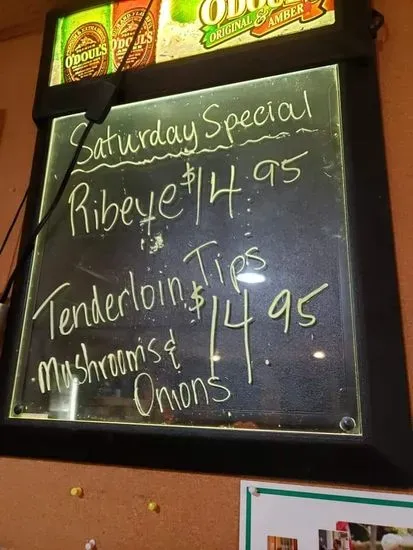 O'DOUL'S O'DOUL'S O'DOUL'S
ORIGINAL & AMBER
Saturday Special
Ribeye $14.95
Tenderloin Tips
Mushrooms & $14.95
Onions